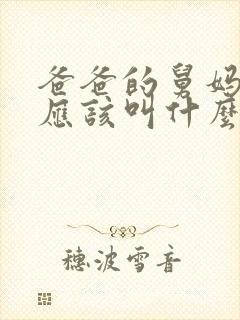 爸爸的舅妈
应該叫什麼
穗波雪音